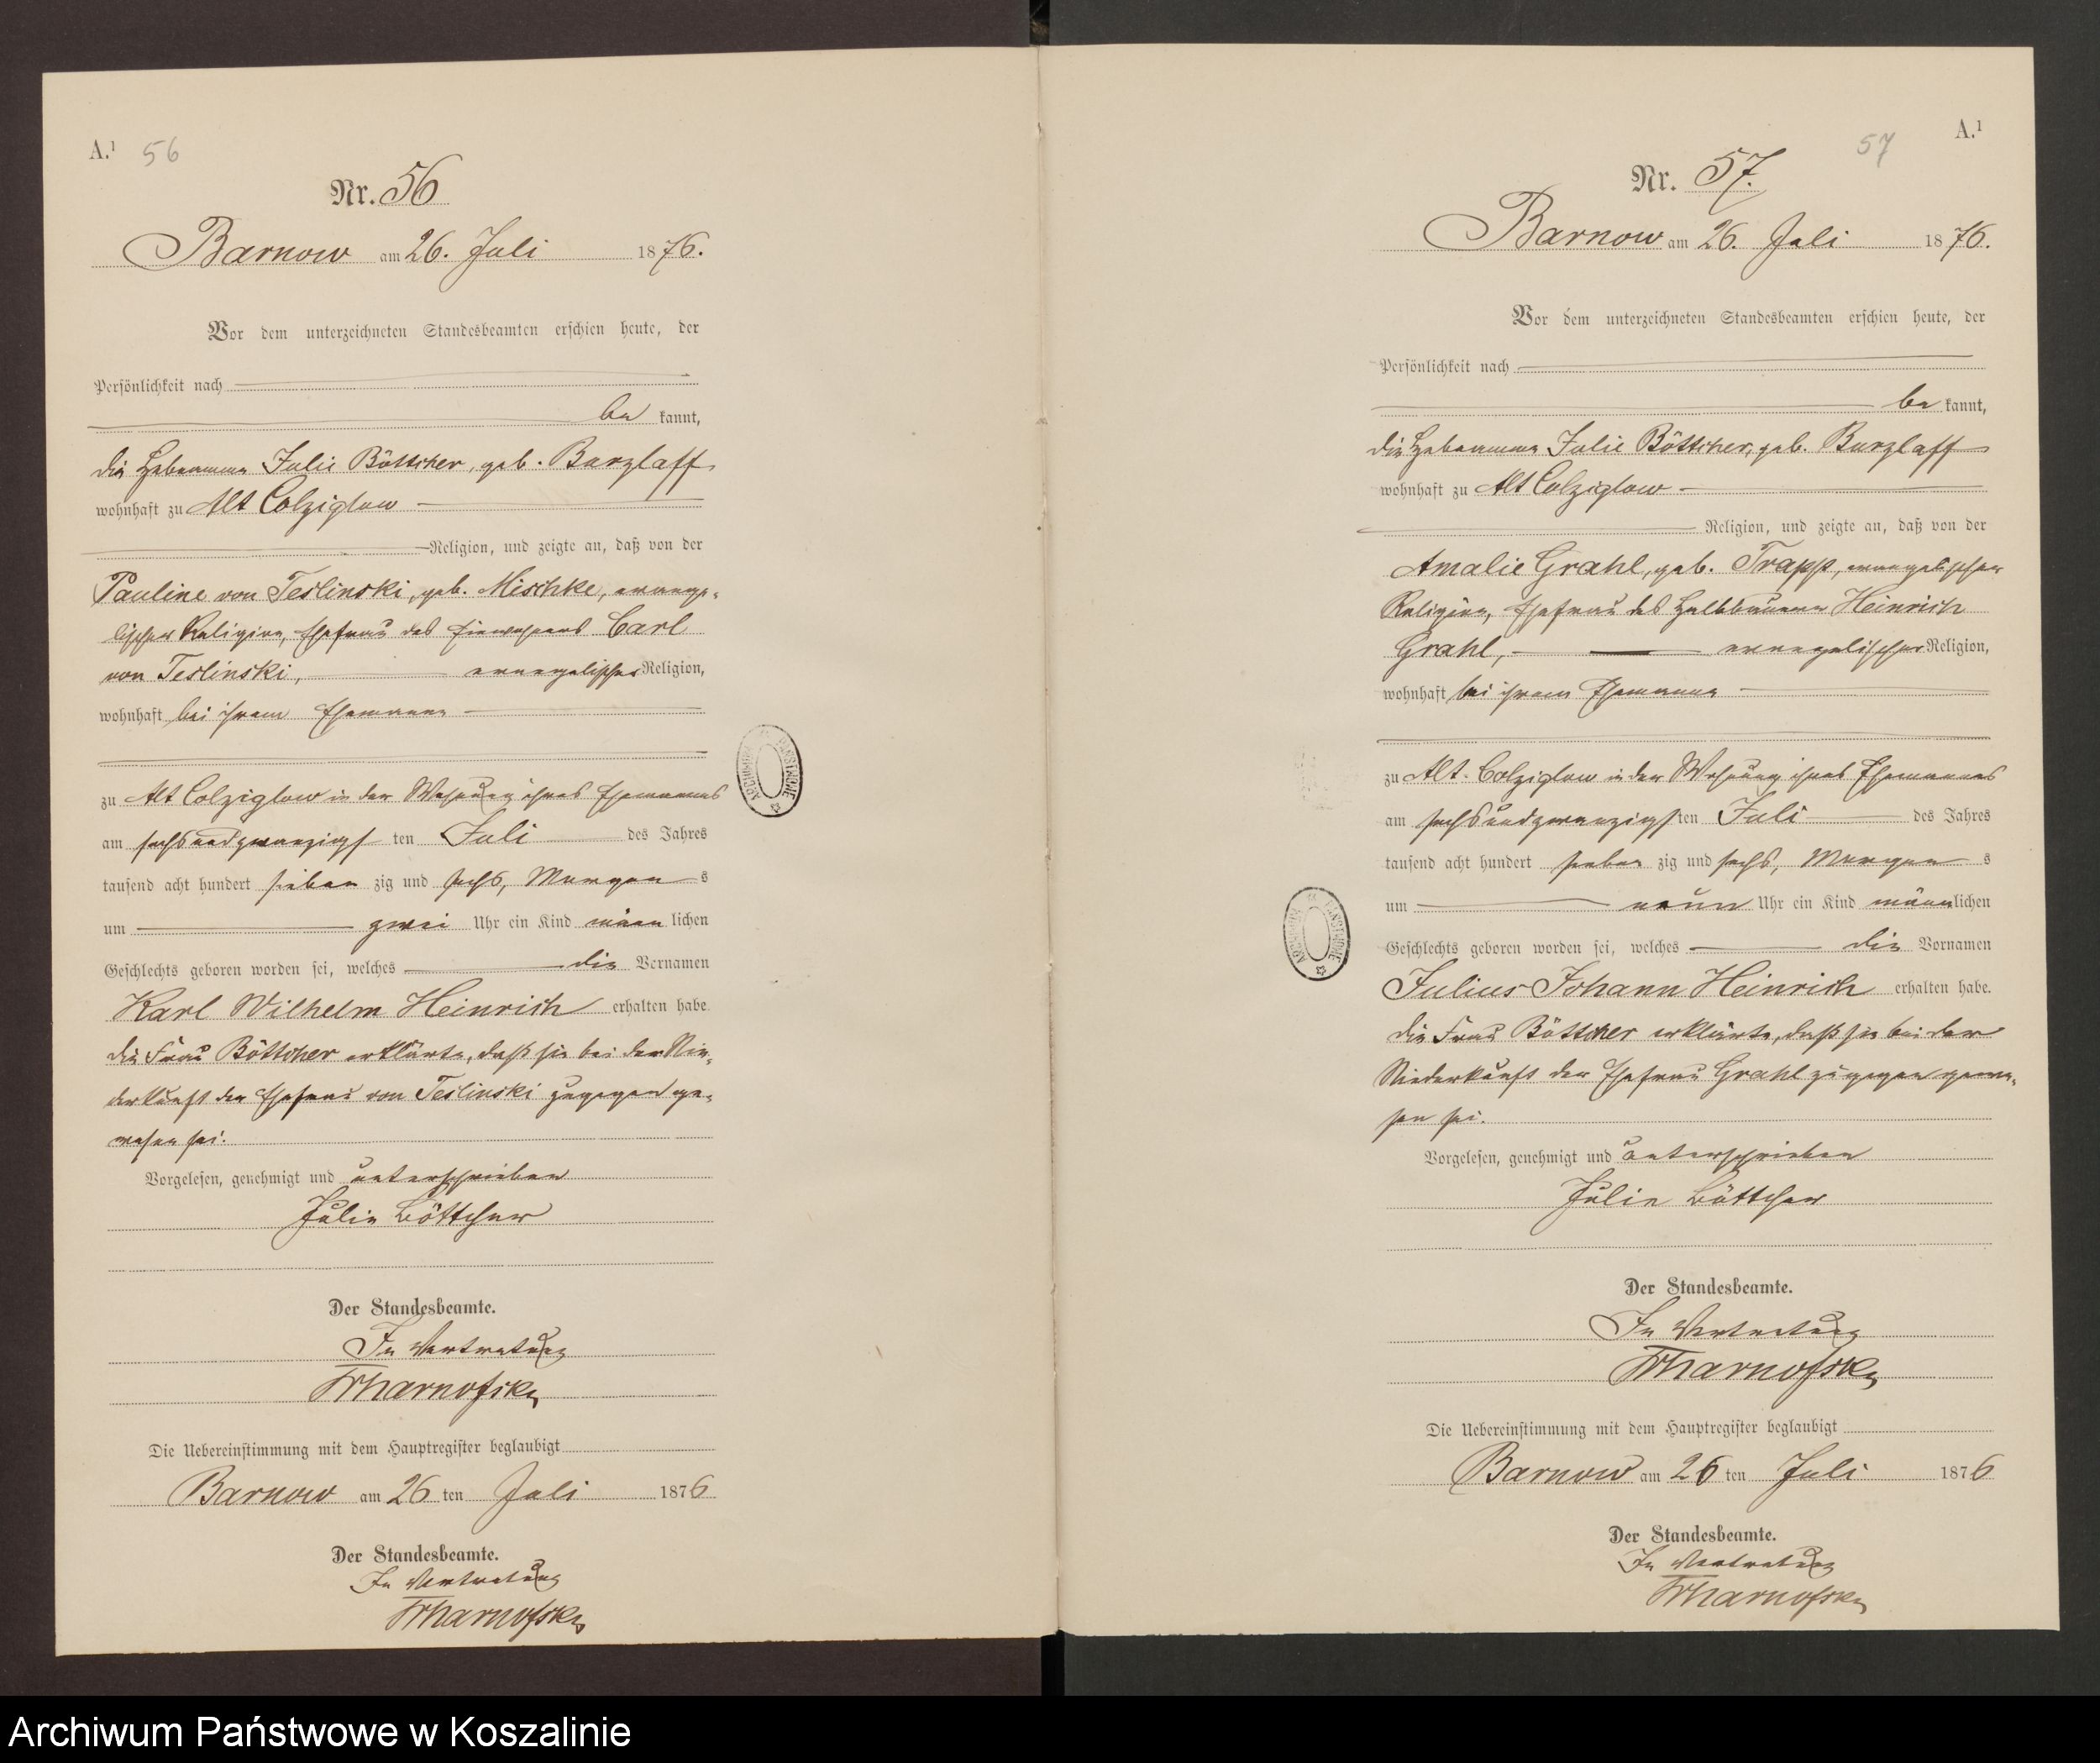 A.¹ 56
Nr. 56
Barnow am 26. Juli 1876.
Vor dem unterzeichneten Standesbeamten erschien heute, der
Persönlichkeit nach
be kannt,
die Hebeamme Julie Böttcher, geb. Burzlaff
wohnhaft zu Alt Colziglow
Religion, und zeigte an, daß von der
Pauline von Teslinski, geb. Mischke, evange-
lischer Religion, Ehefrau des Einwohners Carl
von Teslinski, evangelischer Religion,
wohnhaft bei ihrem Ehemanne
zu Alt Colziglow in der Wohnung ihres Ehemannes
am sechsundzwanzigs ten Juli des Jahres
tausend acht hundert sieben zig und sechs, Morgen s
um zwei Uhr ein Kind männ lichen
Geschlechts geboren worden sei, welches die Vornamen
Karl Wilhelm Heinrich erhalten habe.
die Frau Böttcher erklärte, daß sie bei der Nie-
derkunft der Ehefrau von Teslinski zugegen ge-
wesen sei.
Vorgelesen, genehmigt und unterschrieben
Julie Böttcher
Der Standesbeamte.
In Vertretung
Die Uebereinstimmung mit dem Hauptregister beglaubigt
Barnow am 26 ten Juli 1876
Der Standesbeamte.
In Vertretung
57 A.¹
Nr. 57.
Barnow am 26. Juli 1876.
Vor dem unterzeichneten Standesbeamten erschien heute, der
Persönlichkeit nach
be kannt,
die Hebeamme Julie Böttcher, geb. Burzlaff
wohnhaft zu Alt Colziglow
Religion, und zeigte an, daß von der
Amalie Grahl, geb. Trapp, evangelischer
Religion, Ehefrau des Halbbauern Heinrich
Grahl, evangelischer Religion,
wohnhaft bei ihrem Ehemanne
zu Alt-Colziglow in der Wohnung ihres Ehemannes
am sechsundzwanzigs ten Juli des Jahres
tausend acht hundert sieben zig und sechs, Morgen s
um neun Uhr ein Kind männ lichen
Geschlechts geboren worden sei, welches die Vornamen
Julius Johann Heinrich erhalten habe.
die Frau Böttcher erklärte, daß sie bei der
Niederkunft der Ehefrau Grahl zugegen gewe-
sen sei.
Vorgelesen, genehmigt und unterschrieben
Julie Böttcher
Der Standesbeamte.
In Vertretung
Die Uebereinstimmung mit dem Hauptregister beglaubigt
Barnow am 26 ten Juli 1876
Der Standesbeamte.
In Vertretung
Archiwum Państwowe w Koszalinie